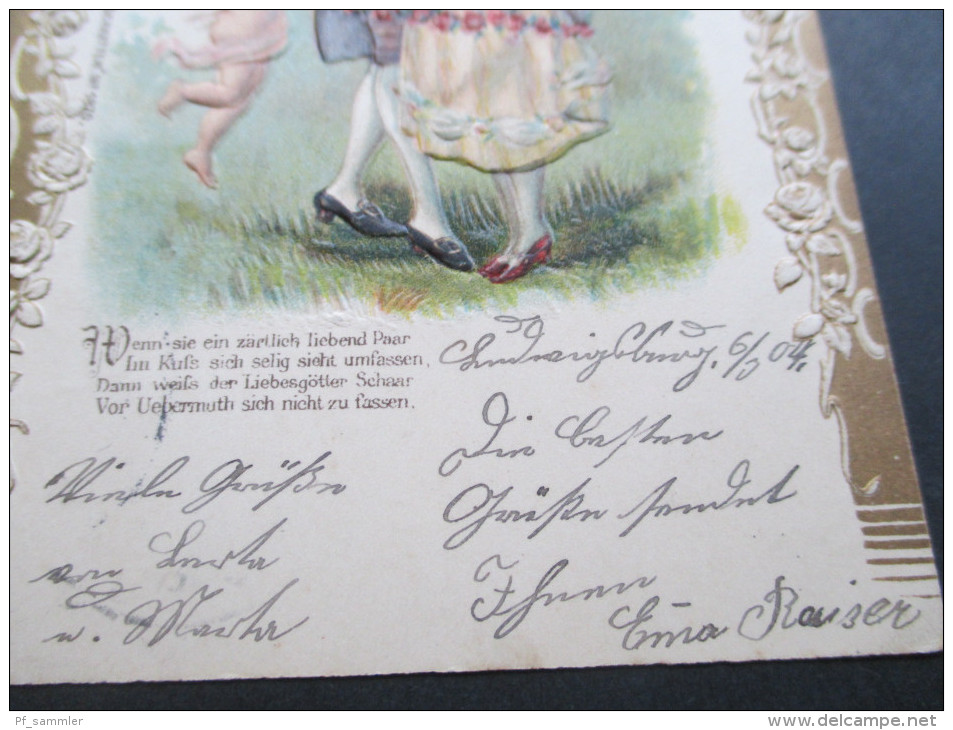 Wenn sie ein zärtlich liebend Paar
Im Kuſs sich selig sieht umfassen,
Dann weiſs der Liebesgötter Schaar
Vor Uebermuth sich nicht zu fassen.
Ludwigsburg, 6/3 04.
Die besten
Grüße sendet
Ihnen
Ema Kaiser
Viele Grüße
von
Berta
u. Marta
Pf_sammler
www.delcampe.net